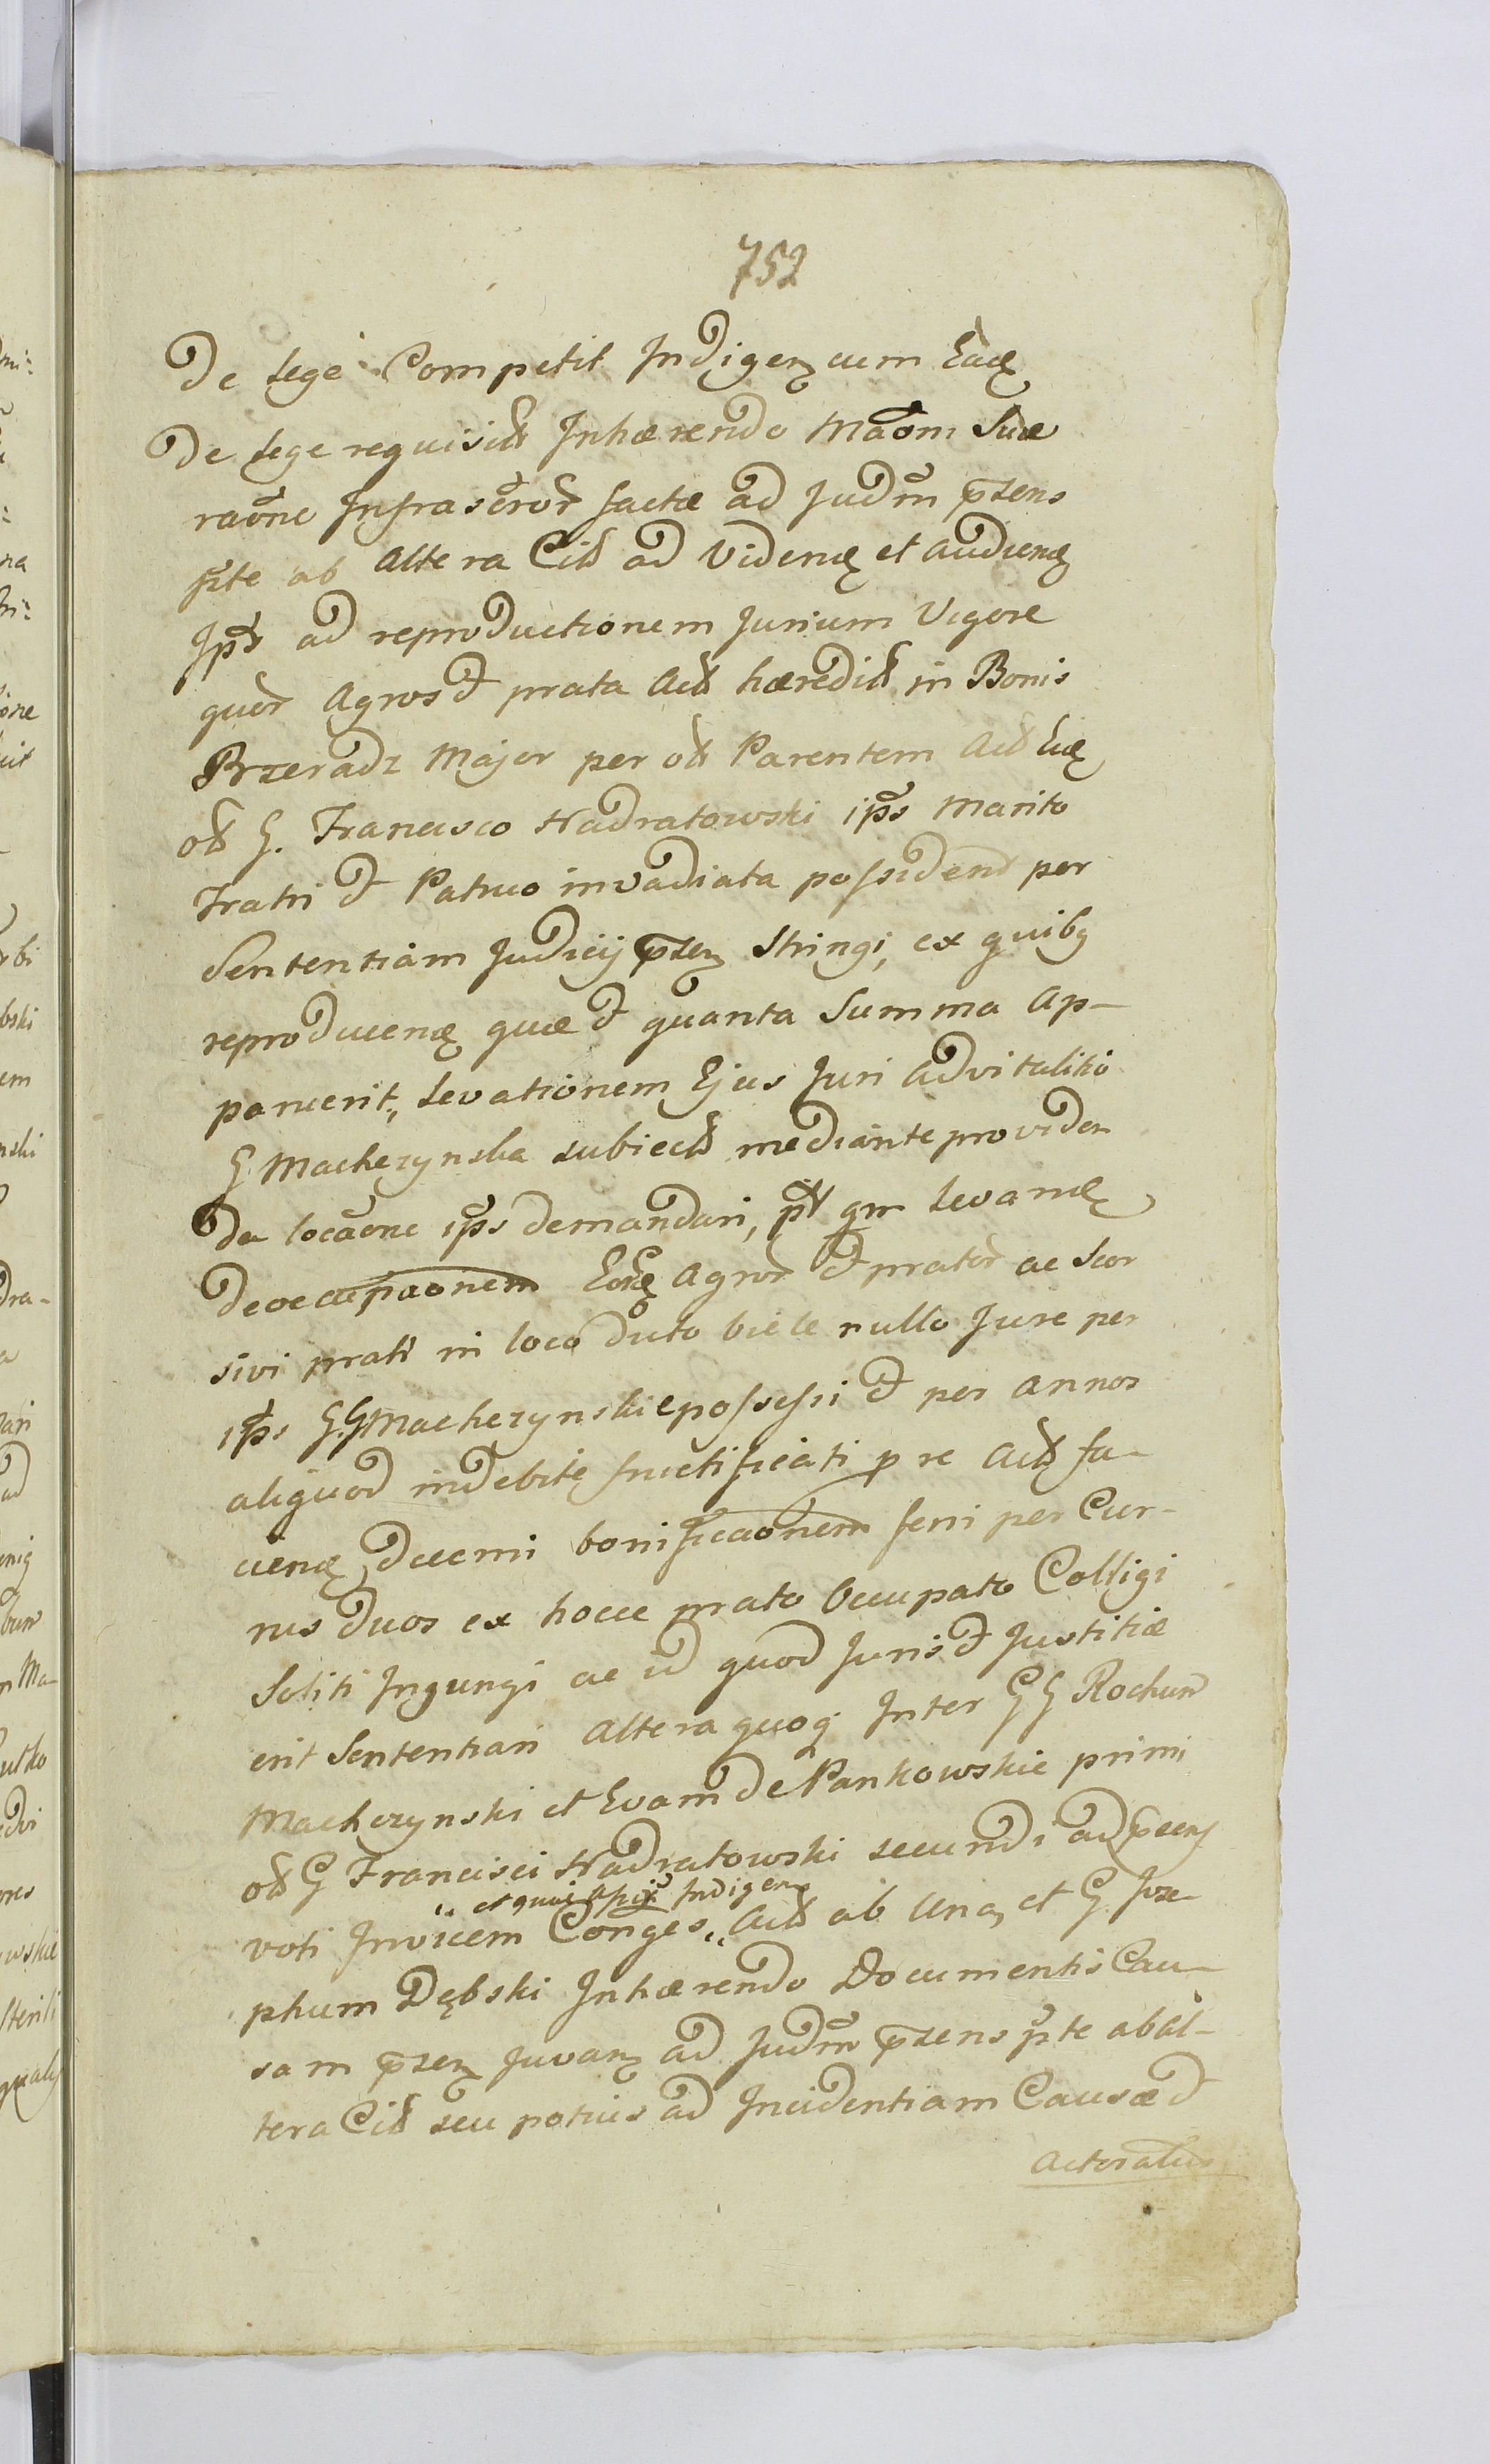 752
De Lege Competit Indigen cum Eadę
De Lege requisit Inhærendo Maõm Suæ
raõne Infrascrõr factæ ad Judm̃ p̃sens
p̃te ab Altera Cit ad Videnę et audienę
Ip̃s ad reproductionem Jurium Vigore
quor Agros & prata Act hæredit in Bonis
Brzeradz Major per ol Parentem Act Euę
ol G. Francisco Nadratowski ip̃s Marito
Fratri & Patruo invadiata possidend per
Sententiam Judicij p̃sen Stringi, ex quibg
reproducenę quæ & quanta Summa Ap-
paruerit, Levationem Ejus Juri Advitalitio
G Machczynska subiect mediante providen
da locãone ip̃s demandari, pt qm Levamę
deoccupaonem Eorę Agror & prator ac Scor
sivi prati in loco dicto biele nullo Jure per
ip̃s G.G Machczynskie possessi & per annos
aliquod indebite fructificati p re Act fa-
cienę decerni bonificaonem feni per Cur-
rus duos ex hocce prato Occupato Colligi
Soliti Injungi ac id quod Juris & Justitiæ
erit Sententiari Altera quoq Inter G G Rochum
Machczynski et Evam de Pankowskie primi
ol G Francisci Nadratowski secundi ad p̃sens
voti Invicem Conges „ et quæ Indigen „ Act ab Una, et G Joze-
phum Dębski Inhærendo Documentis Cau-
sam p̃sen Juvan ad Judm̃ p̃sens p̃te ab al-
tera Cit seu potius ad Incidentiam Causæ &
Actoratus